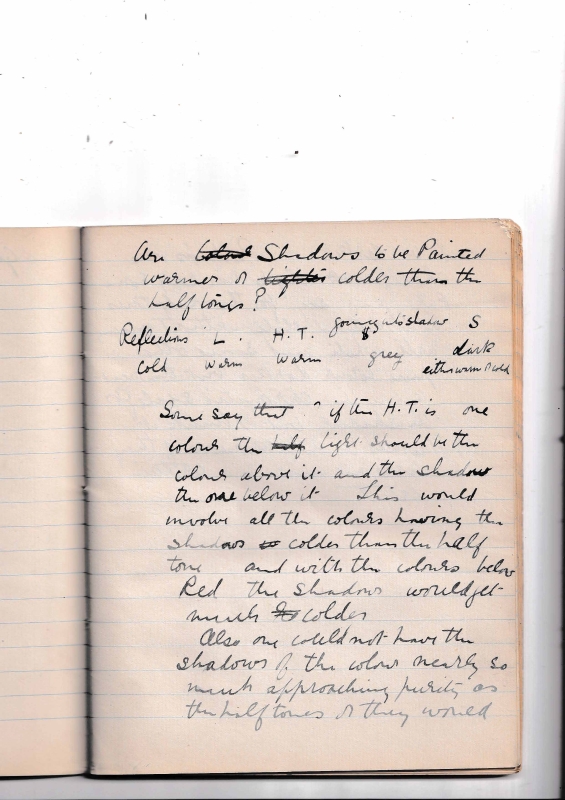 Are Colour Shadows to be Painted
warmer or lighter colder than the
half tones?
Reflections L. H.T. going into shadow S
cold warm warm grey dark
either warm or cold
Some say that if the H.T. is one
colour the half light should be the
colour above it and the shadow
the one below it This would
involve all the colours having the
shadows colder than the half
tone and with the colours below
Red the shadows would get
much colder
Also one could not have the
shadows of the colour nearly so
much approaching purity as
the half tones or they would